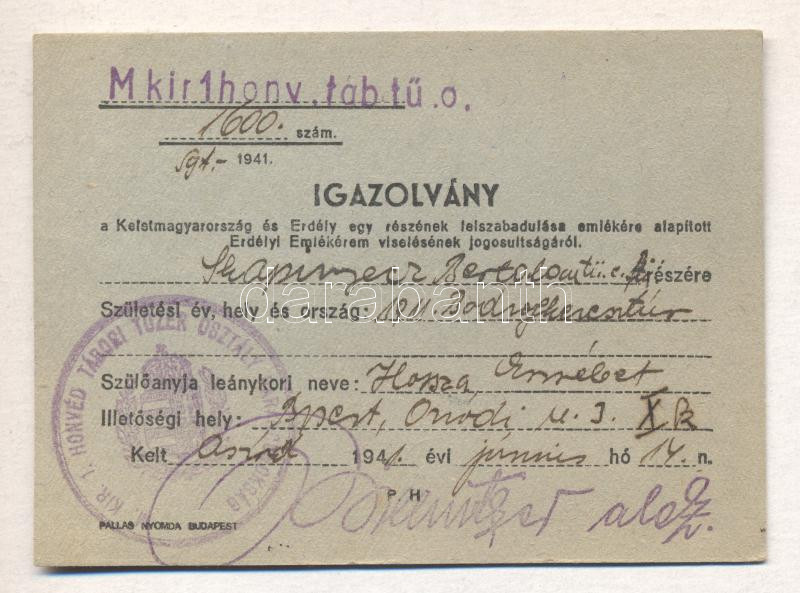 M kir 1 honv. táb tü. o.
1600. szám.
1941.
IGAZOLVÁNY
a Keletmagyarország és Erdély egy részének felszabadulása emlékére alapított
Erdélyi Emlékérem viselésének jogosultságáról.
Bertalan tü. részére
Születési év, hely és ország: Bodrogkeresztúr
Szülőanyja leánykori neve: Hossza Erzsébet
Illetőségi hely: Bpest, u. 3. X k
Kelt 1941. évi június hó 14. n.
P. H.
PALLAS NYOMDA BUDAPEST
KIR. 1. HONVÉD TÁBORI TÜZÉR OSZTÁLY PARANCSNOKSÁG
darabanth.com